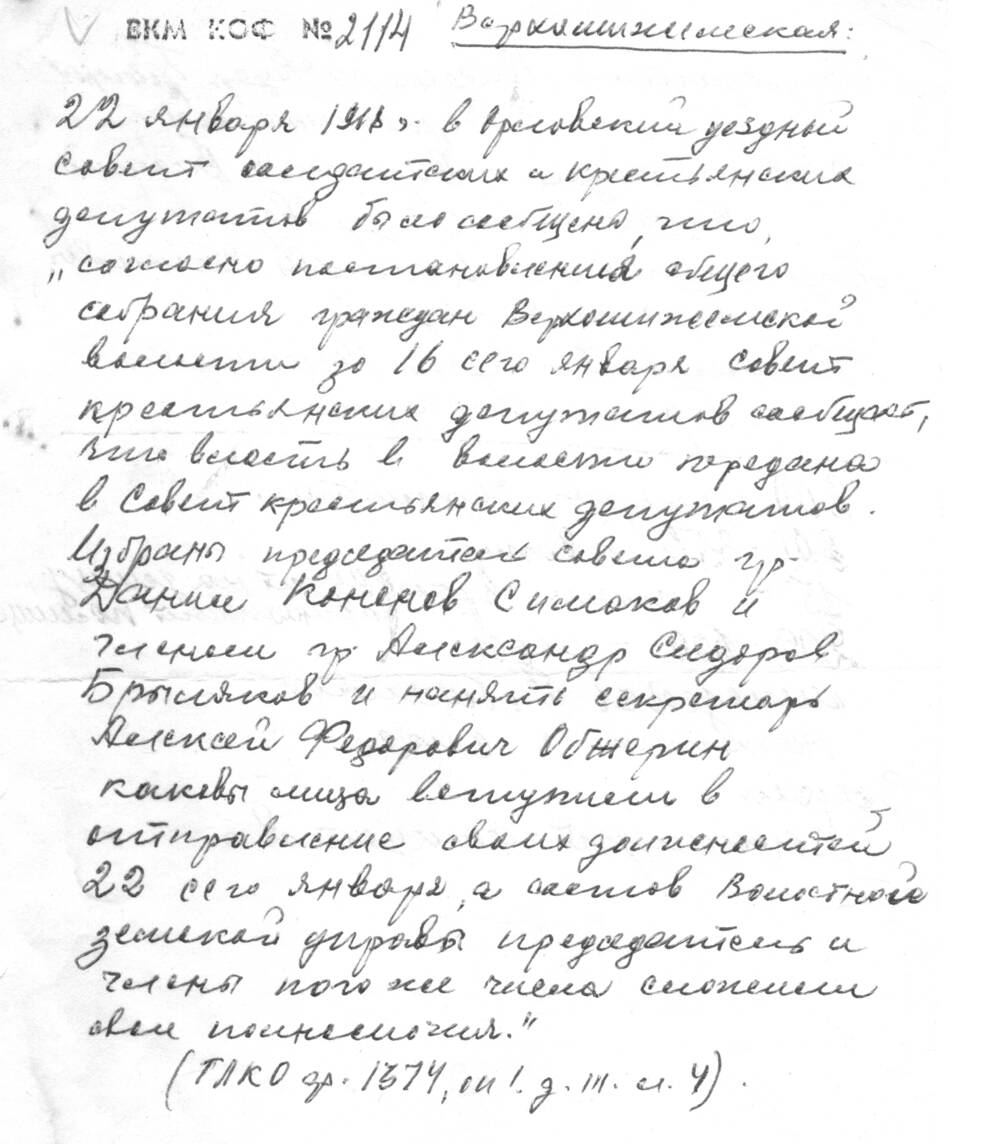 ВКМ КОФ №2114 Верхошижемская:
22 января 1918 г. в Орловский уездный
совет солдатских и крестьянских
депутатов было сообщено, что,
„согласно постановлений общего
собрания граждан Верхошижемской
волости за 16 сего января совет
крестьянских депутатов сообщает,
что власть в волости передана
в Совет крестьянских депутатов.
Избраны председатель совета гр.
Данил Кононов Симаков и
членом гр. Александр Сидоров
Брыляков и нанять секретарь
Алексей Федорович Обжерин
каковы лица вступили в
отправление своих должностей
22 сего января, а состав Волостной
земской управы председатель и
члены того же числа сложили
свои полномочия."
(ГАКО ф. 1374, оп 1. д. III. л. 4).